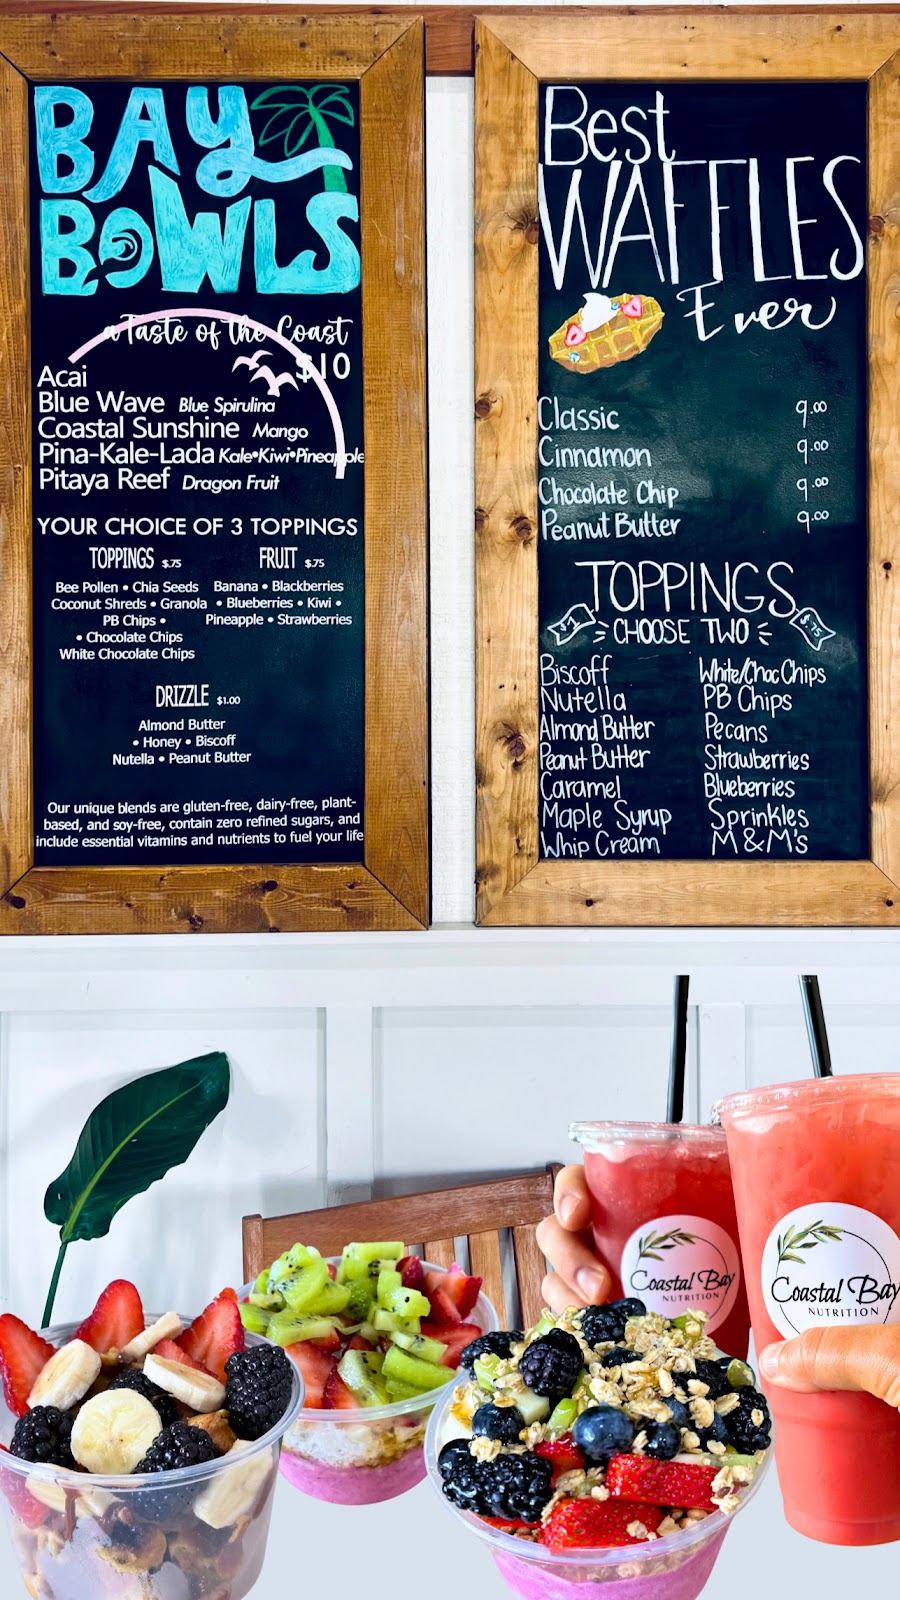 BAY
BOWLS
a Taste of the Coast
$10
Acai
Blue Wave Blue Spirulina
Coastal Sunshine Mango
Pina-Kale-Lada Kale•Kiwi•Pineapple
Pitaya Reef Dragon Fruit
YOUR CHOICE OF 3 TOPPINGS
TOPPINGS $.75
Bee Pollen • Chia Seeds
Coconut Shreds • Granola
PB Chips •
• Chocolate Chips
White Chocolate Chips
FRUIT $.75
Banana • Blackberries
• Blueberries • Kiwi •
Pineapple • Strawberries
DRIZZLE $1.00
Almond Butter
• Honey • Biscoff
Nutella • Peanut Butter
Our unique blends are gluten-free, dairy-free, plant-
based, and soy-free, contain zero refined sugars, and
include essential vitamins and nutrients to fuel your life
Best
WAFFLES
Ever
Classic 9.00
Cinnamon 9.00
Chocolate Chip 9.00
Peanut Butter 9.00
TOPPINGS
$1 CHOOSE TWO $.75
Biscoff
Nutella
Almond Butter
Peanut Butter
Caramel
Maple Syrup
Whip Cream
White/Choc Chips
PB Chips
Pecans
Strawberries
Blueberries
Sprinkles
M&M's
Coastal Bay
NUTRITION
Coastal Bay
NUTRITION